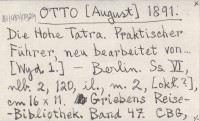 OTTO [August] 1891.
Die Hohe Tatra. Praktischer
Führer, neu bearbeitet von...
[Wyd. 1.] — Berlin. Ss. VI,
nlb. 2, 120, il., m. 2, [okł.?],
cm 16 x 11. Griebens Reise-
-Bibliothek. Band 47. CBG,